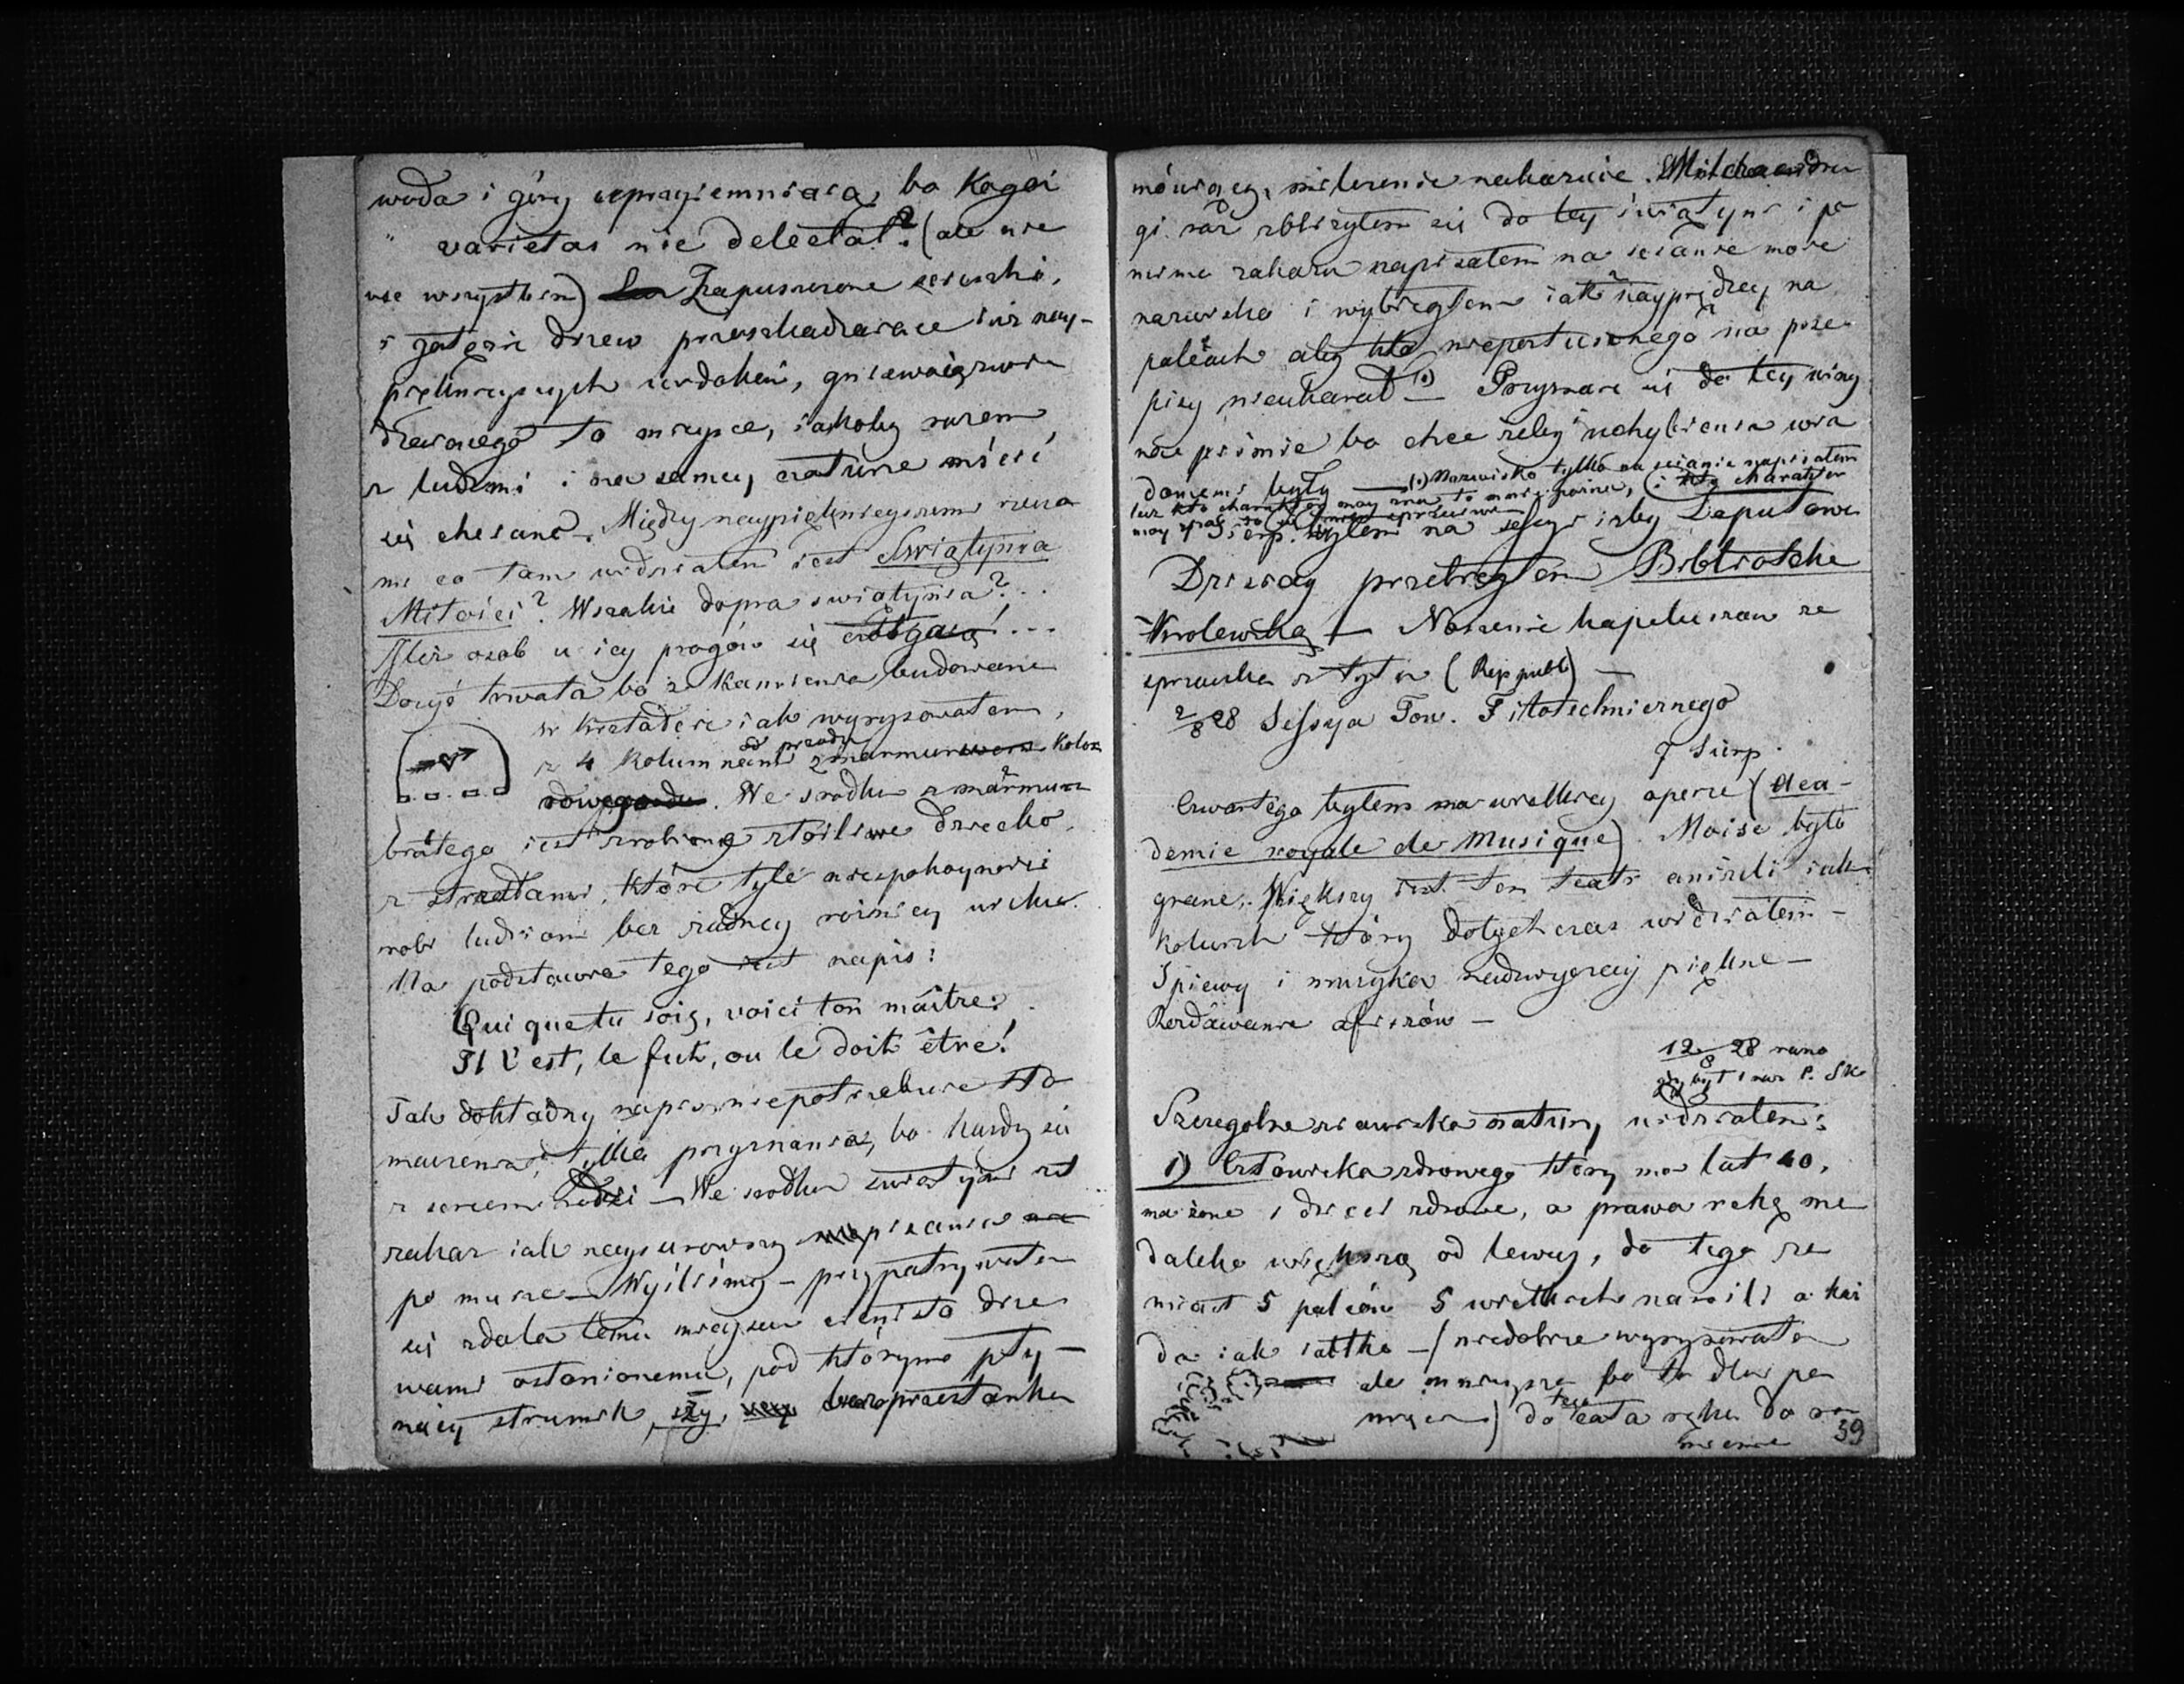 woda i góry uprzyiemniaią, bo Kogoż
varietas nie delectat? (ale nie
we wszystkim) Zapuszczone ścieszki,
i gałęzie drzew przeszkadzaiące iuż nay-
pięknieyszych widoków, gniewaią zwie
dzaiącego to mieysce, iakoby razem
z ludźmi i na samey naturze mścić
się chciano. Między naypięknieyszemi rzecza
mi co tam widziałem iest Swiątynia
Miłości? Wszakże dopra swiątynia? ..
Ileż osob u iey progów się !...
Dosyć trwała bo z kamienia budowana
w kształcie iak wyrysowałem,
z 4 kolumnami od przodu z marmuru
We srodku z marmuru
białego iest zrobione złośliwe dziecko
z strzałami, które tyle niespokoyności
robi ludziom bez żadney różnicy wieku.
Na podstawie tego iest napis:
Qui que tu sois, voici ton maître:
Il l'est, le fut, ou le doit être!
Tak dokładny napis niepotrzebuie tło
maczenia, tylko przyznania, bo każdy się
z sercem rodzi — We srodku swiątyni iest
zakaz iak naysurowszy pisania
po murze — Wyiśliśmy — przypatrywałem
się zdala temu mieyscu cienisto drze
wami osłonionemu, pod którym pły-
nący strumyk, bezprzestanku
mówiący, milczenie nakazuie.
gi raz zbliżyłem się do tey świątyni i po
mimo zakazu napisałem na ścianie moie
nazwisko i wybiegłem iak nayprędzey na
palcach aby kto niepostrzeżonego na prze
pisy nieukarał (1) — Przyznaię się do tey winy
na pismie bo chcę żeby uchybienia wia
domemi były — (1) Nazwisko tylko na ścianie napisałem
lecz kto charakter moy zna to mnie pozna, i kto charakter
Sierp. byłem na sessyi izby Deputowa
Dzisiay przebiegłem Bibliotekę
Krolewską — Noszenie kapeluszow ze
sprzączką z tyłu (Rep publ) —
2/8 28 Sessya Tow. Filotechnicznego
7 Sierp.
Czwartego byłem na wielkiey operze (Aca-
demie royale de Musique) Moise było
grane. Większy iest ten teatr aniżeli iaki
kolwiek który dotychczas widziałem —
Spiewy i muzyka nadzwyczay piękne —
Rozdawanie afiszów —
12/8 28 rano
gdy był i nas P. Sk
Szczegolne ziawiska natury widziałem:
1) Człowieka zdrowego który ma lat 40,
ma żonę i dzieci zdrowe, a prawą rękę ma
daleko większą od lewey, do tego za
miast 5 palców 5 wielkich narośli a każ
da iak iabłko — (niedobrze wyrysowałem
ale mnieysza bo to dla pa
mięci) do tego cała ręka do ra
mienia
39